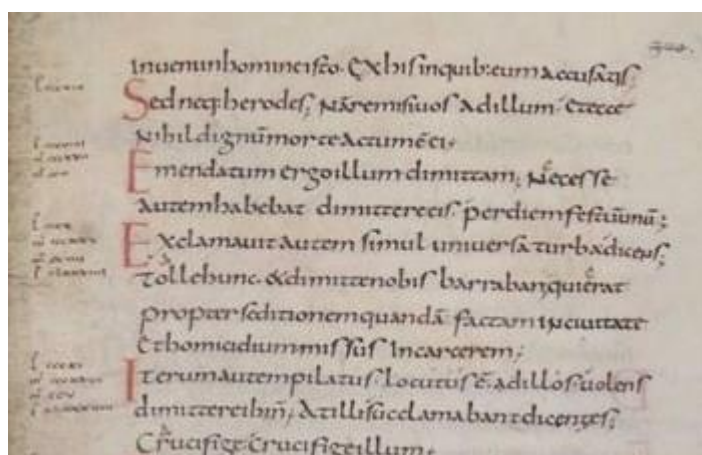 invenin homine isto. Ex his in quib: eum accusatis;
Sed neq: herodes; Nā remisi uos ad illum. Et ecce
nihil dignū morte actum ē ei.
Emendatum ergo illum dimittam; Necesse
autem habebat dimittere eis. per diem festū unū;
Exclamauit autem simul uniuersa turba dicens;
Tolle hunc. & dimitte nobis barraban; qui erat
propter seditionem quandā factam in ciuitate
Et homicidium missus in carcerem;
Iterum autem pilatus locutus ē ad illos. uolens
dimittere ihm̄; At illi succlamabant dicentes;
Crucifige. Crucifige illum.